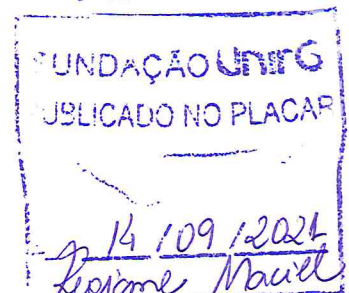 FUNDAÇÃO UnirG
PUBLICADO NO PLACAR
14 / 09 / 2021
Maciel